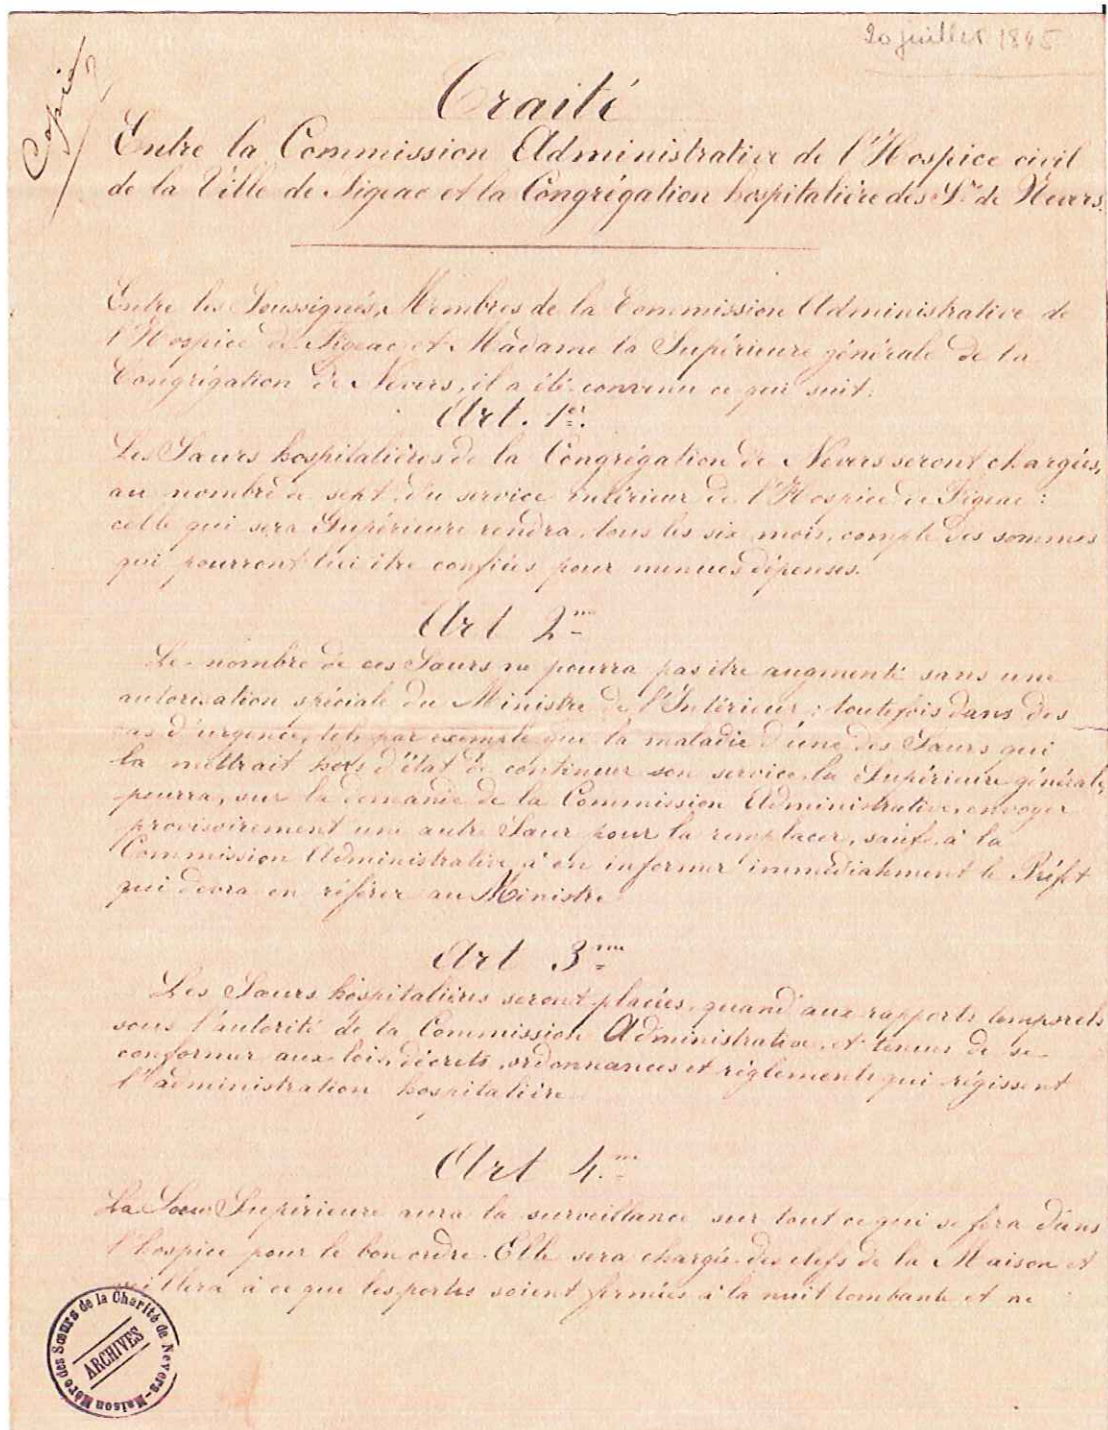 20 juillet 1845
Copie
Traité
Entre la Commission Administrative de l'Hospice civil
de la Ville de Figeac et la Congrégation hospitalière des Srs de Nevers.
Entre les Soussignés, Membres de la Commission Administrative de
l'Hospice de Figeac, et Madame la Supérieure générale de la
Congrégation de Nevers, il a été convenu ce qui suit.
Art. 1er.
Les Sœurs hospitalières de la Congrégation de Nevers seront chargées,
au nombre de sept, du service intérieur de l'Hospice de Figeac :
celle qui sera Supérieure rendra, tous les six mois, compte des sommes
qui pourront lui être confiées pour menues dépenses.
Art 2me
Le nombre de ces Sœurs ne pourra pas être augmenté sans une
autorisation spéciale du Ministre de l'Intérieur ; toutefois dans des
cas d'urgence, tels par exemple que la maladie d'une des Sœurs qui
la mettrait hors d'état de continuer son service, la Supérieure générale,
pourra, sur la demande de la Commission Administrative, envoyer
provisoirement une autre Sœur pour la remplacer, sauf, à la
Commission Administrative, à en informer immédiatement le Préfet
qui devra en référer au Ministre
Art 3me
Les Sœurs hospitalières seront placées, quand aux rapports temporels
sous l'autorité de la Commission Administrative, et tenues de se
conformer aux lois, décrets, ordonnances et règlements qui régissent
l'administration hospitalière
Art 4me
La Sœur Supérieure aura la surveillance sur tout ce qui se fera dans
l'hospice pour le bon ordre. Elle sera chargée des clefs de la Maison et
veillera à ce que les portes soient fermées à la nuit tombante et ne
Maison Mère des Sœurs de la Charité de Nevers
ARCHIVES